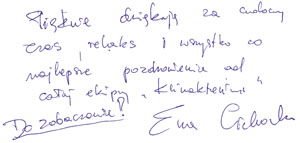 Pięknie dziękuję za cudowny
czas, relaks i wszystko co
najlepsze pozdrowienia od
całej ekipy „Klimakterium"
Do zobaczenia! Ewa